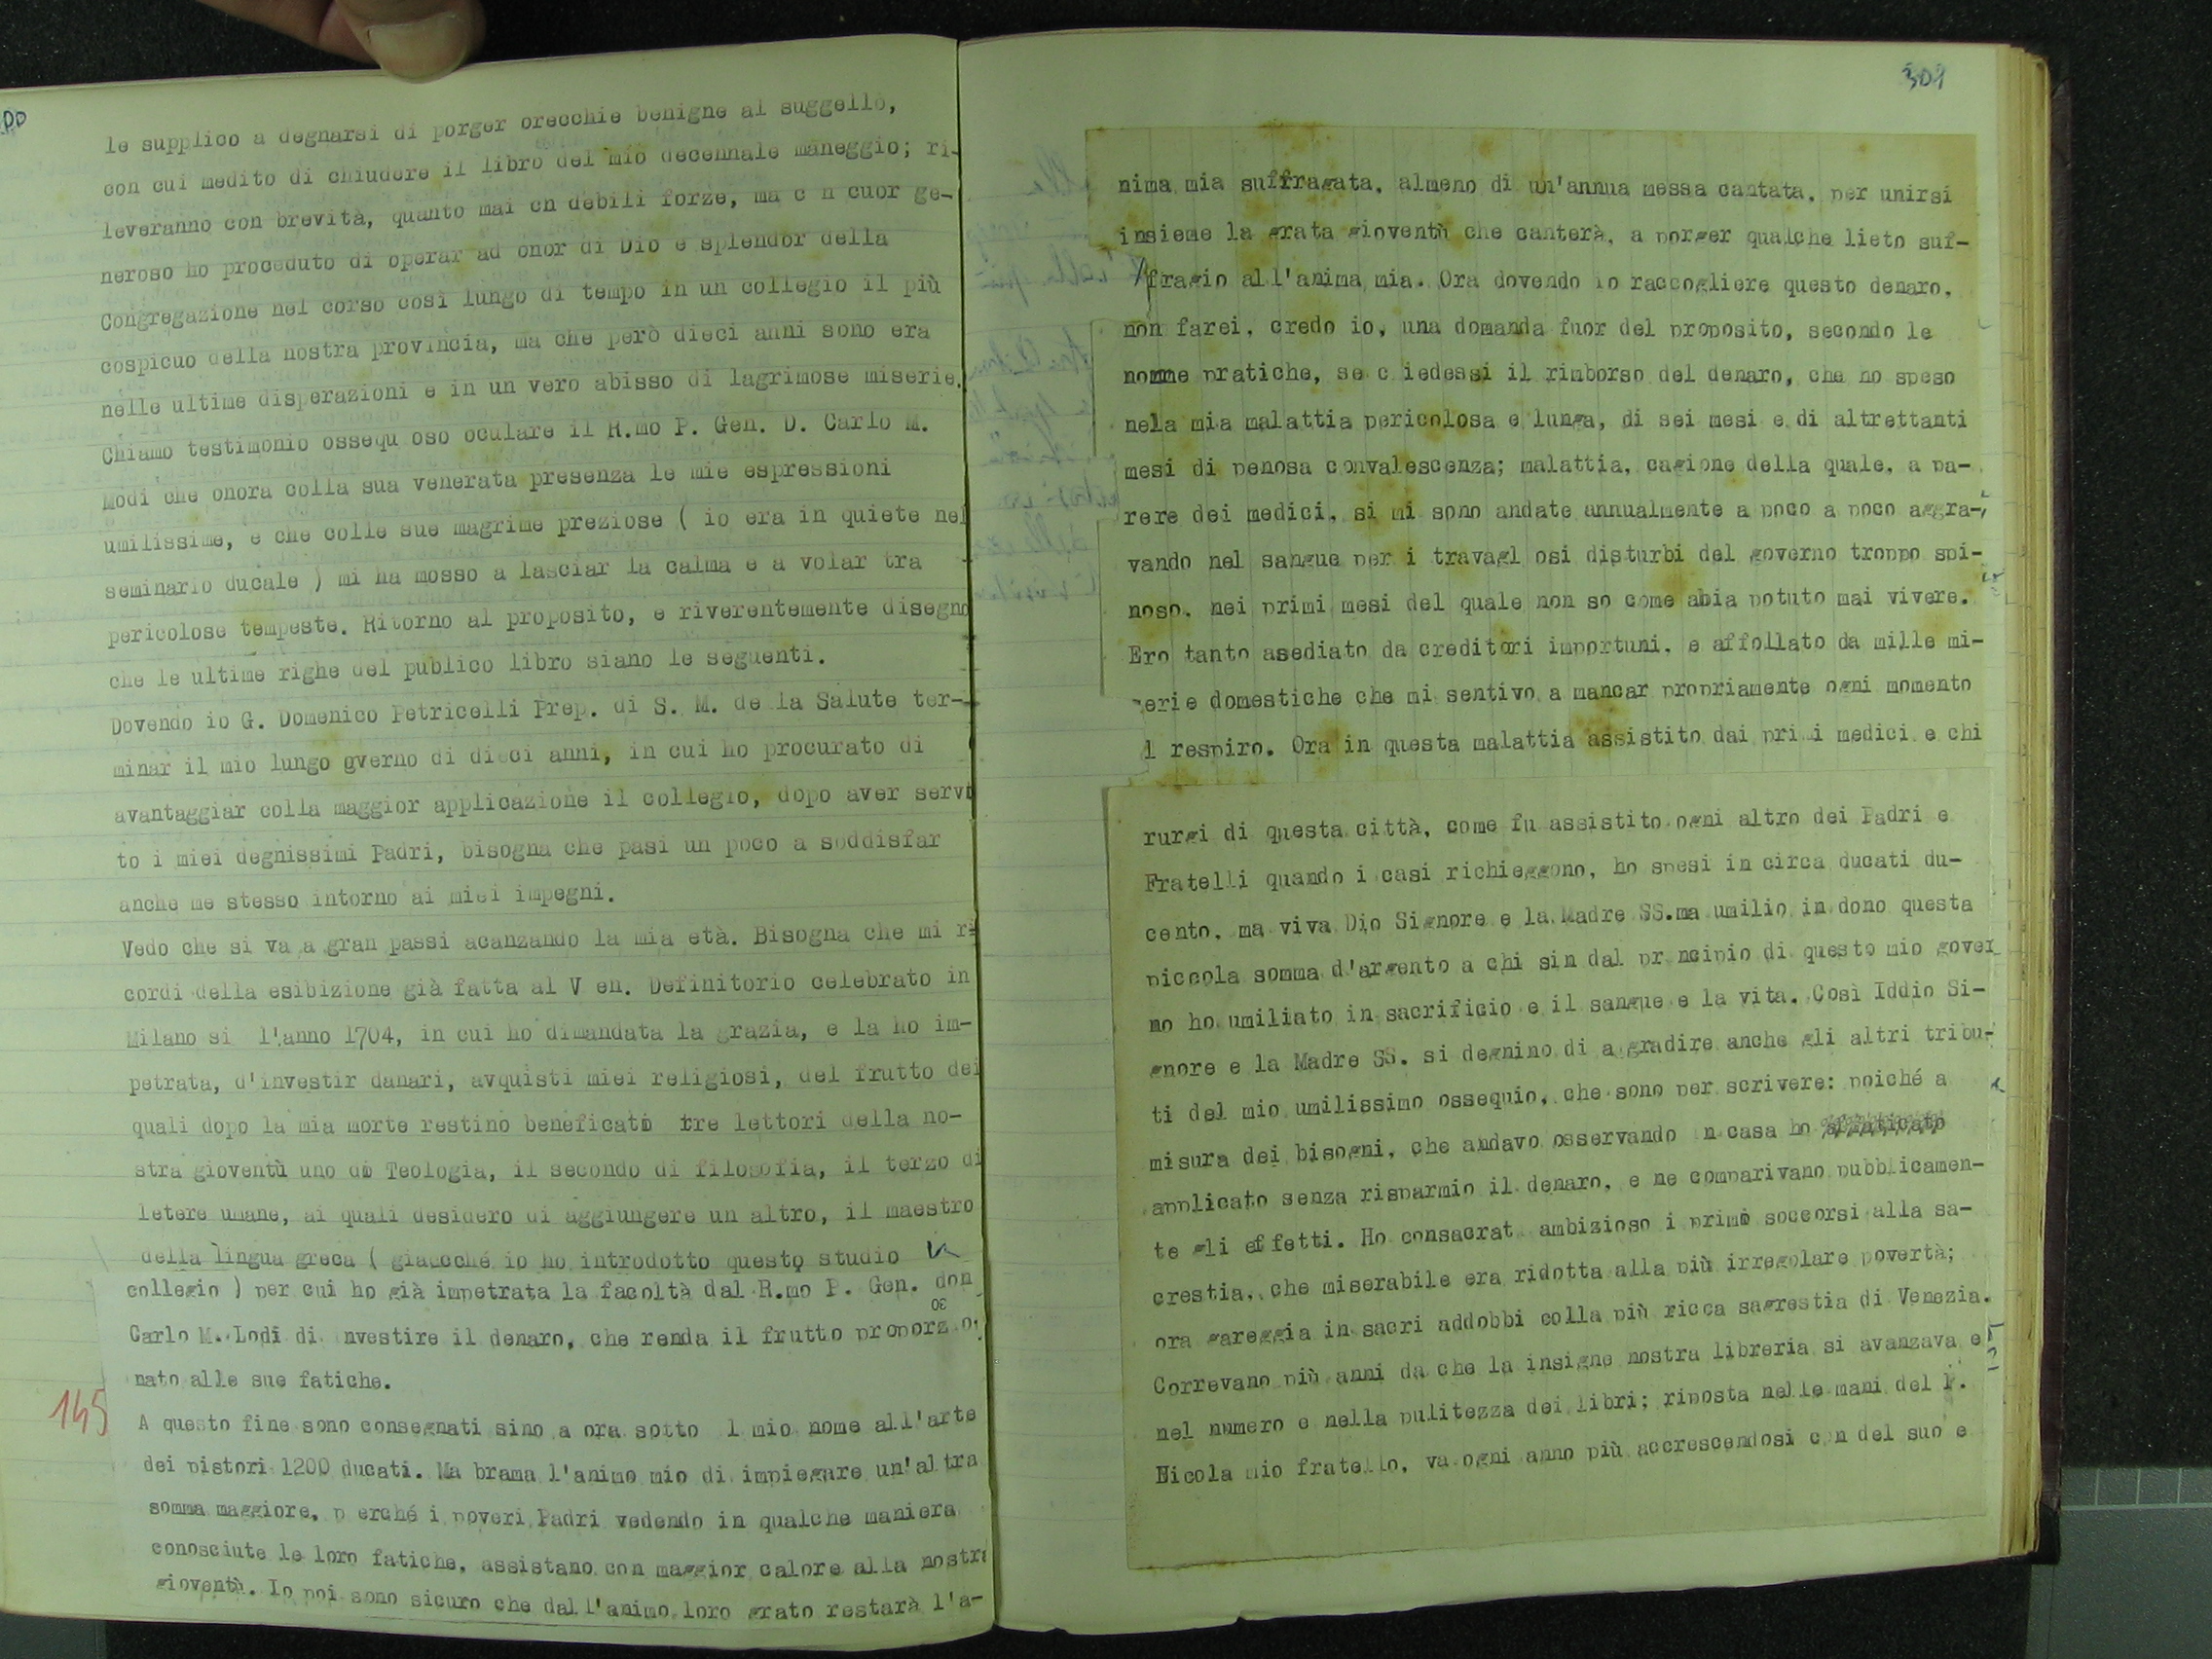 00
le supplico a degnarsi di porger orecchie benigne al suggello,
con cui medito di chiudere il libro del mio decennale maneggio; ri-
leveranno con brevità, quanto mai cn debili forze, ma c n cuor ge-
neroso ho proceduto di operar ad onor di Dio e splendor della
Congregazione nel corso così lungo di tempo in un collegio il più
cospicuo della nostra provincia, ma che però dieci anni sono era
nelle ultime disperazioni e in un vero abisso di lagrimose miserie.
Chiamo testimonio ossequ oso oculare il R.mo P. Gen. D. Carlo M.
Lodi che onora colla sua venerata presenza le mie espressioni
umilissime, e che colle sue magrime preziose ( io era in quiete nel
seminario ducale ) mi ha mosso a lasciar la calma e a volar tra
pericolose tempeste. Ritorno al proposito, e riverentemente disegno
che le ultime righe del publico libro siano le seguenti.
Dovendo io G. Domenico Petricelli Prep. di S. M. de la Salute ter-
minar il mio lungo gverno di dieci anni, in cui ho procurato di
avantaggiar colla maggior applicazione il collegio, dopo aver servi
to i miei degnissimi Padri, bisogna che pasi un poco a soddisfar
anche me stesso intorno ai miei impegni.
Vedo che si va a gran passi acanzando la mia età. Bisogna che mi ri
cordi della esibizione già fatta al V en. Definitorio celebrato in
Milano si l'anno 1704, in cui ho dimandata la grazia, e la ho im-
petrata, d'investir danari, avquisti miei religiosi, del frutto dei
quali dopo la mia morte restino beneficati tre lettori della no-
stra gioventù uno di Teologia, il secondo di filosofia, il terzo di
letere umane, ai quali desidero di aggiungere un altro, il maestro
della lingua greca ( giacché io ho introdotto questo studio
collegio ) per cui ho già impetrata la facoltà dal R.mo P. Gen. don
Carlo M. Lodi di nvestire il denaro, che renda il frutto proporz o
nato alle sue fatiche.
145
A questo fine sono consegnati sino a ora sotto l mio nome all'arte
dei pistori 1200 ducati. Ma brama l'animo mio di impiegare un'altra
somma maggiore, p erché i poveri Padri vedendo in qualche maniera
conosciute le loro fatiche, assistano con maggior calore alla nostra
gioventù. Io poi sono sicuro che dall'animo loro grato restarà l'a-
301
nima mia suffragata, almeno di un'annua messa cantata, per unirsi
insieme la grata gioventù che canterà, a porger qualche lieto suf-
fragio all'anima mia. Ora dovendo io raccogliere questo denaro,
non farei, credo io, una domanda fuor del proposito, secondo le
nomme pratiche, se c iedessi il rimborso del denaro, che ho speso
nela mia malattia pericolosa e lunga, di sei mesi e di altrettanti
mesi di penosa convalescenza; malattia, cagione della quale, a pa-
rere dei medici, si mi sono andate annualmente a poco a poco aggra-
vando nel sangue per i travagl osi disturbi del governo troppo spi-
noso, nei primi mesi del quale non so come abia potuto mai vivere.
Ero tanto asediato da creditori importuni, e affollato da mille mi-
serie domestiche che mi sentivo a mancar propriamente ogni momento
l respiro. Ora in questa malattia assistito dai primi medici e chi
rurgi di questa città, come fu assistito ogni altro dei Padri e
Fratelli quando i casi richieggono, ho spesi in circa ducati du-
cento, ma viva Dio Signore e la Madre SS.ma umilio in dono questa
piccola somma d'argento a chi sin dal pr ncipio di questo mio gover
no ho umiliato in sacrificio e il sangue e la vita. Così Iddio Si-
gnore e la Madre SS. si degnino di aggradire anche gli altri tribu-
ti del mio umilissimo ossequio, che sono per scrivere: poiché a
misura dei bisogni, che andavo osservando n casa ho
applicato senza risparmio il denaro, e ne comparivano pubblicamen-
te gli effetti. Ho consacrat ambizioso i primi soccorsi alla sa-
crestia, che miserabile era ridotta alla più irregolare povertà;
ora gareggia in sacri addobbi colla più ricca sagrestia di Venezia.
Correvano più anni da che la insigne nostra libreria si avanzava e
nel numero e nella pulitezza dei libri; riposta nelle mani del P.
Nicola mio fratello, va ogni anno più accrescendosi con del suo e